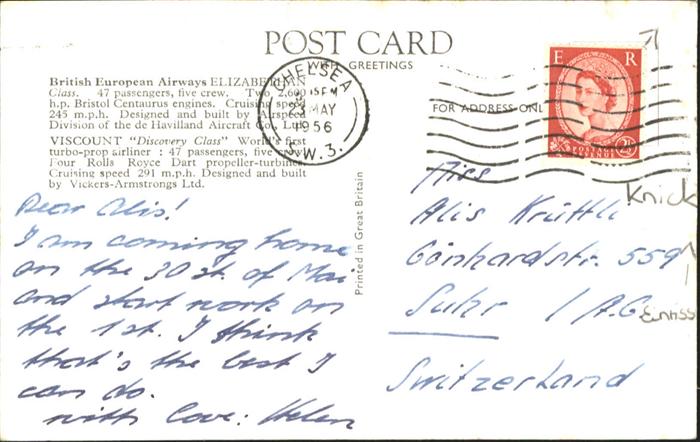 POST CARD
WITH GREETINGS
British European Airways ELIZABETHAN
Class. 47 passengers, five crew. Two 2,600
h.p. Bristol Centaurus engines. Cruising speed
245 m.p.h. Designed and built by Airspeed
Division of the de Havilland Aircraft Co., Ltd.
VISCOUNT "Discovery Class" World's first
turbo-prop airliner : 47 passengers, five crew.
Four Rolls Royce Dart propeller-turbines.
Cruising speed 291 m.p.h. Designed and built
by Vickers-Armstrongs Ltd.
Dear Alis!
I am coming home
on the 30st. of Mai
and start work on
the 1st. I think
that's the best I
can do.
with love: Helen
Printed in Great Britain
CHELSEA
MAY
1956
S.W.3.
FOR ADDRESS ONL
E R
POSTAGE
REVENUE
2½
Miss
Alis Krüttli
Gönhardstr. 559
Suhr / A.G.
Switzerland
Knick
Einriss